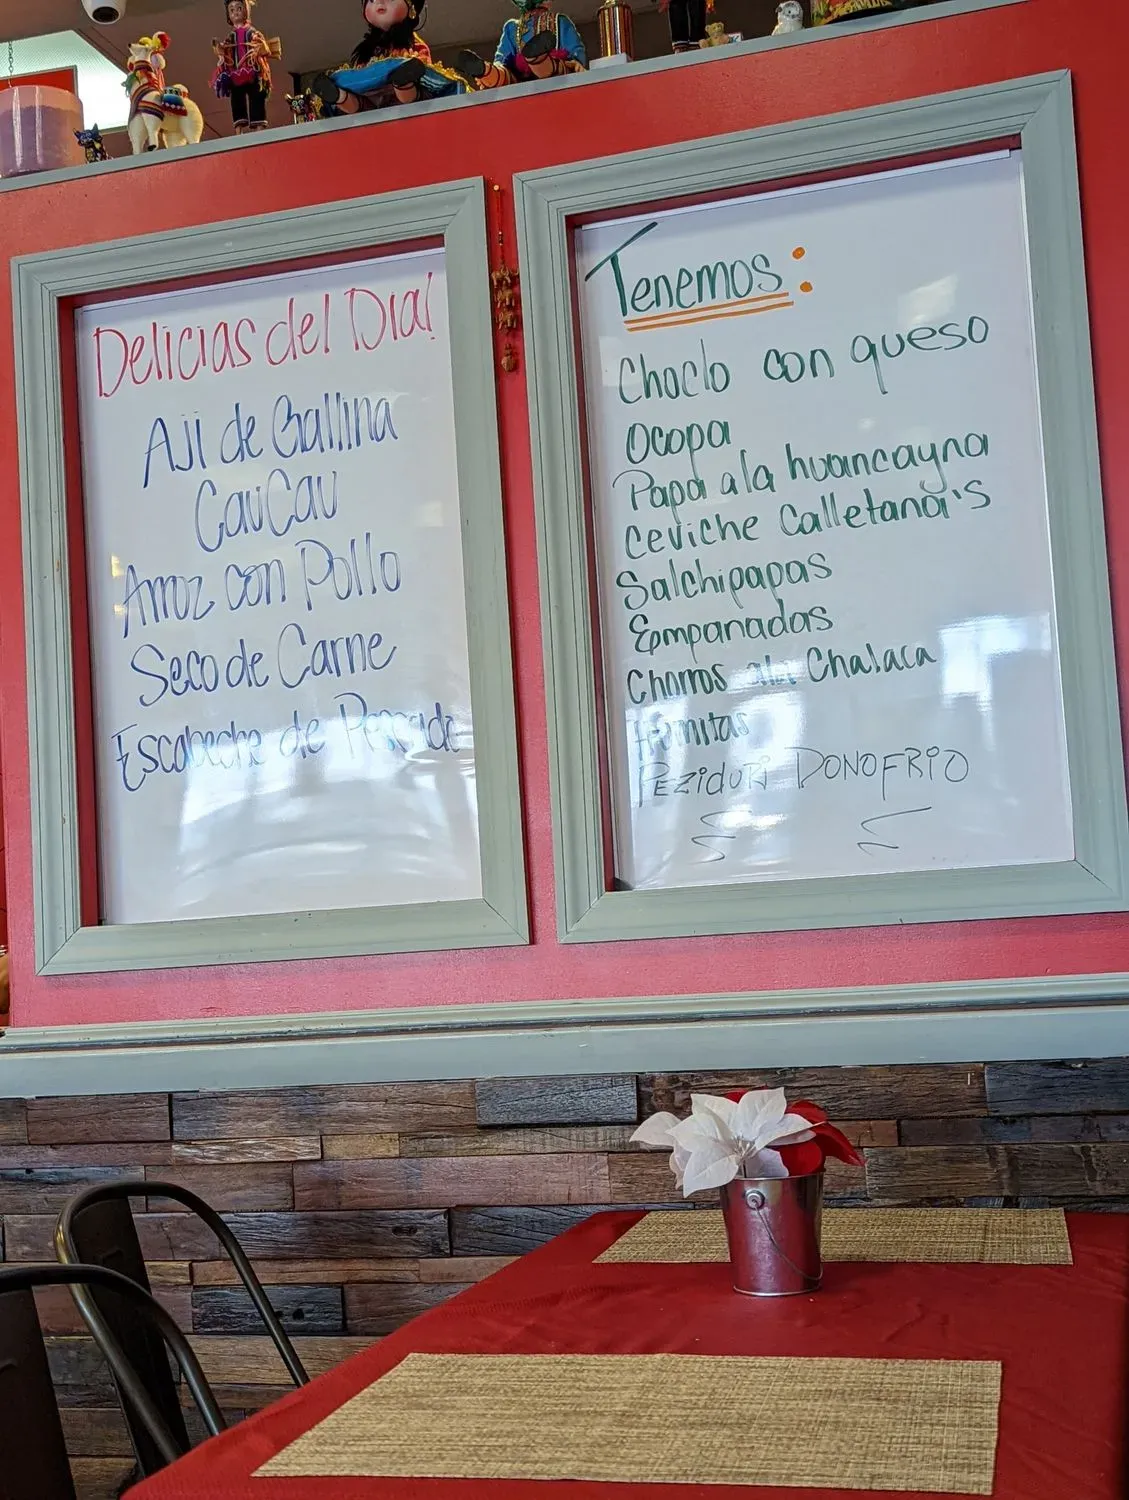 Delicias del Dia!
Aji de Gallina
CauCau
Arroz con Pollo
Seco de Carne
Escabeche de Pescado
Tenemos:
Choclo con queso
Ocopa
Papa ala huancayna
Ceviche Calletana's
Salchipapas
Empanadas
Chorros ala Chalaca
Humitas
PEZIDURI DONOFRIO